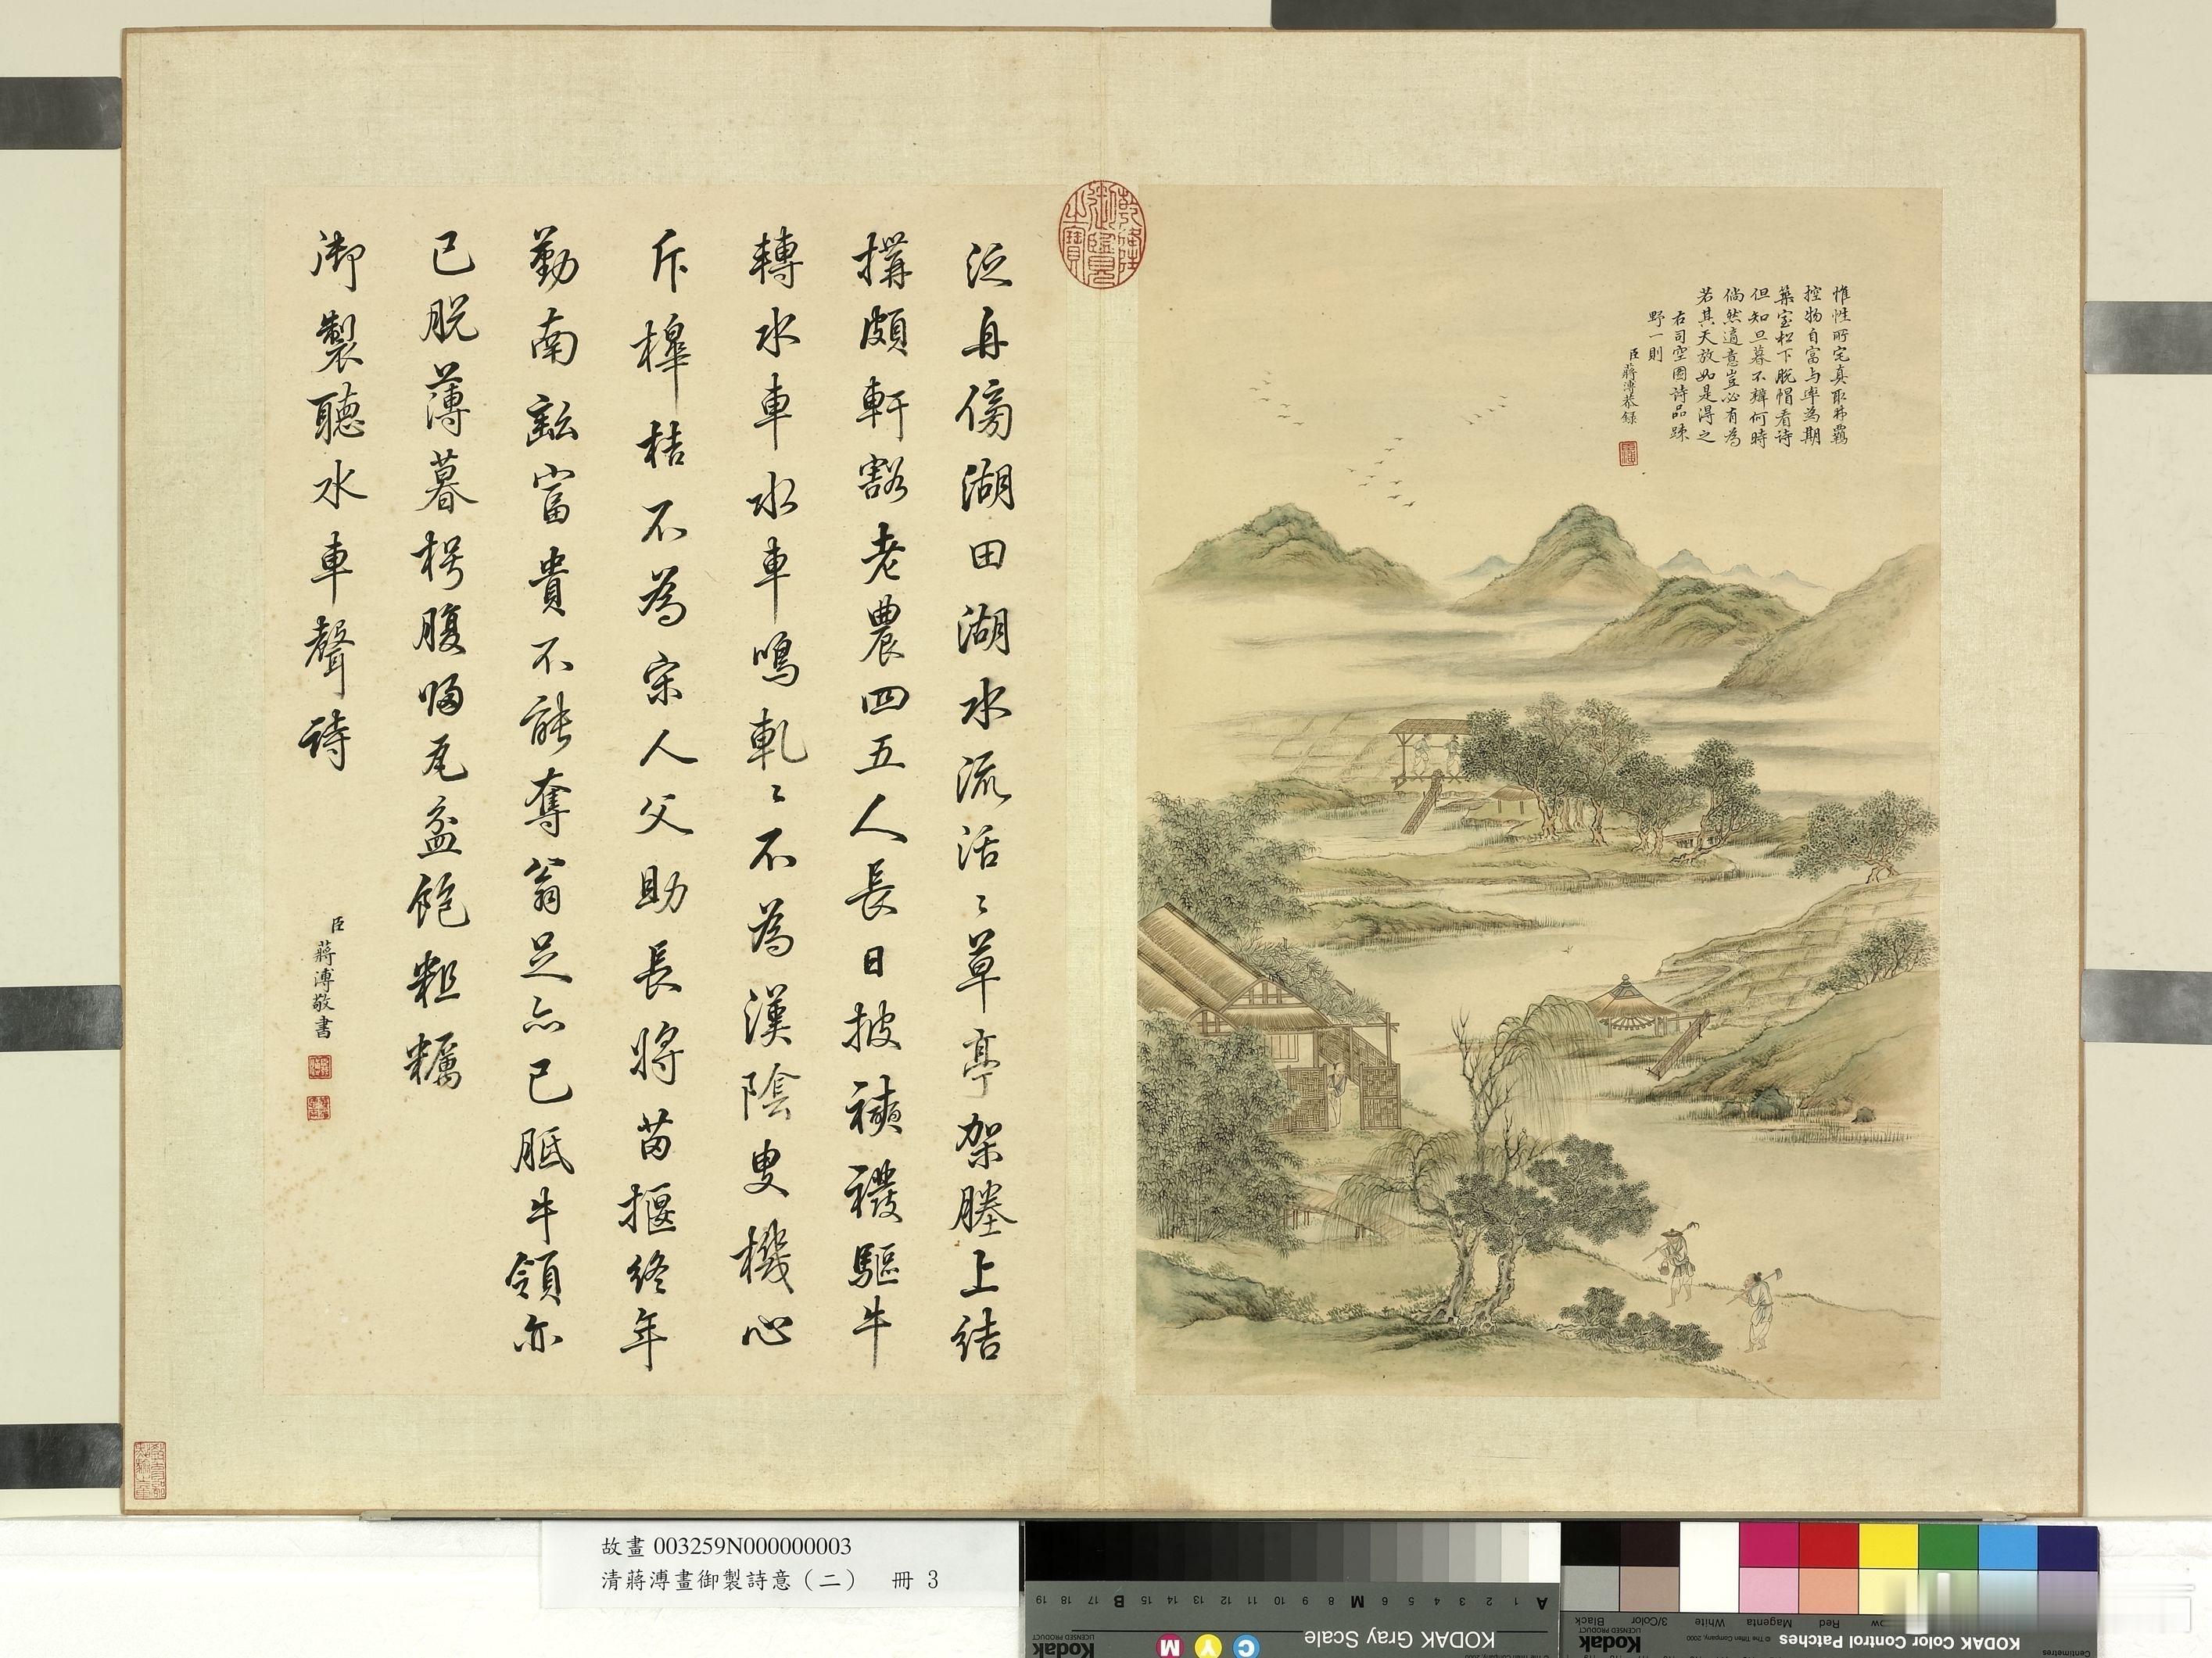 惟性所宅真取弗羈
控物自富与率為期
築室松下脫帽看诗
但知旦暮不辨何時
倘然適意豈必有為
若其天放如是得之
右司空圖诗品疎
野一則
臣蔣溥恭録
泛舟傍湖田湖水流活〻草亭架塍上結
構頗軒豁老農四五人長日披襏襫驅牛
轉水車水車鳴軋〻不為漢陰叟機心
斥槹桔不為宋人父助長將苗揠終年
勤南畝富貴不能奪翁足亦已胝牛領亦
已脱薄暮枵腹歸瓦盆飽粗糲
御製聽水車聲诗
臣蔣溥敬書
故畫 003259N000000003
清蔣溥畫御製詩意（二） 冊 3
KODAK Gray Scale
Kodak
LICENSED PRODUCT
C Y M
A 1 2 3 4 5 6 M 8 9 10 11 12 13 14 15 B 17 18 19
KODAK Color Control Patches
Kodak
LICENSED PRODUCT
© The Tiffen Company, 2000
Centimetres
Red Magenta White 3/Color Black